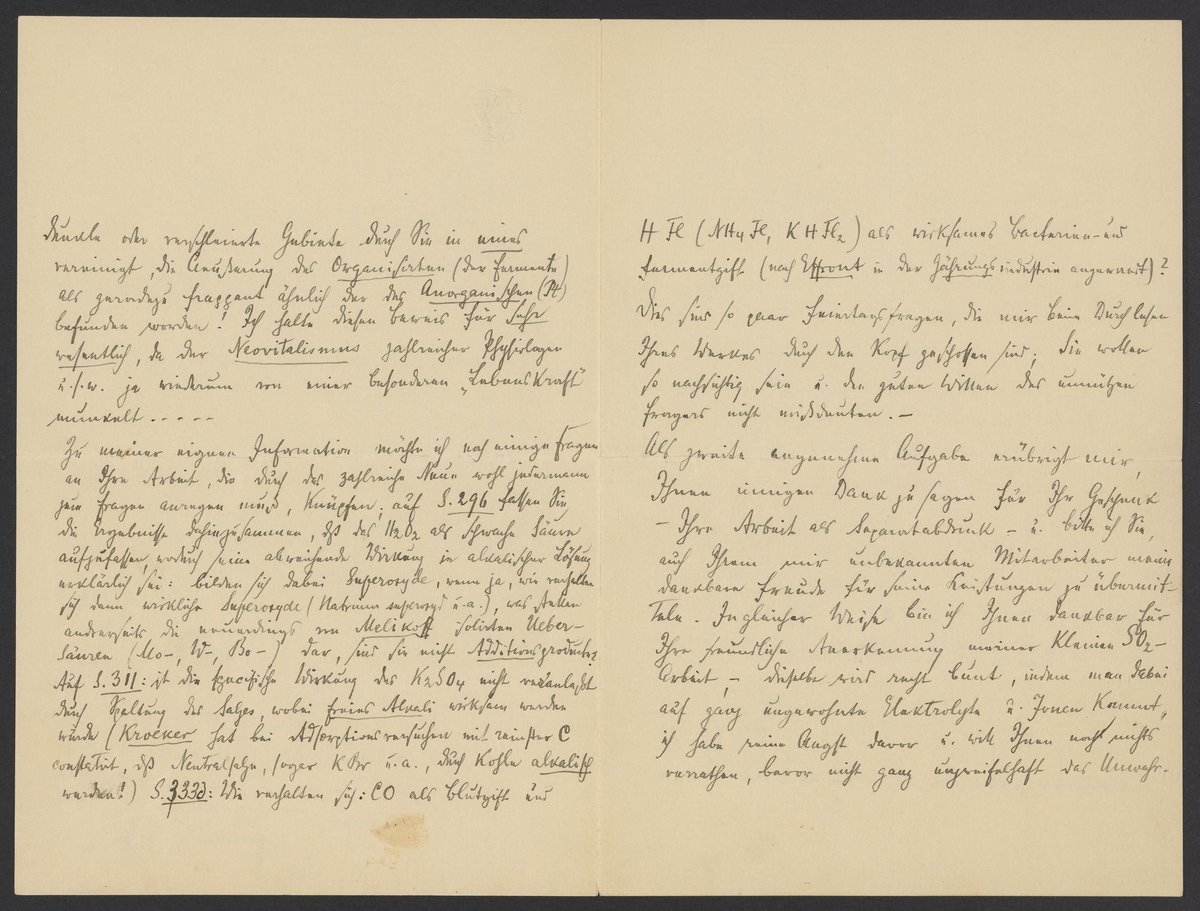 dunkle oder verschleierte Gebiete durch Sie in eines
vereinigt, die Aeußerung des Organisirten (der Fermente)
als geradezu frappant ähnlich der des Anorganischen (Pt)
befunden worden! Ich halte diesen Beweis für sehr
wesentlich, da der Neovitalismus zahlreicher Physiologen
u.s.w. ja wiederum von einer besonderen „Lebenskraft“
munkelt - - - - -
Zu meiner eignen Information möchte ich noch einige Fragen
an Ihre Arbeit, die durch das zahlreiche Neue wohl jedermann
zum Fragen anregen muß, knüpfen; auf S. 296 fassen Sie
die Ergebnisse dahin zusammen, dß das H2O2 als schwache Säure
aufzufassen, wodurch seine abweichende Wirkung in alkalischer Lösung
erklärlich sei: bilden sich dabei Superoxyde, wenn ja, wie verhalten
sich dann wirkliche Superoxyde (Natriumsuperoxyd u.a.), was stellen
andrerseits die neuerdings von Melikoff isolirten Ueber-
säuren (Mo-, W-, Bo-) dar, sind sie nicht Additionsproducte?
Auf S. 311: ist die specifische Wirkung des K2SO4 nicht veranlaßt
durch Spaltung des Salzes, wobei freies Alkali wirksam werden
würde (Kroeker hat bei Adsorptionsversuchen mit reinster C
constatirt, dß Neutralsalze, sogar KBr u.a., durch Kohle alkalisch
werden!) S. 333d: Wie verhalten sich: CO als Blutgift und
HFl (NH4Fl, KHFl2) als wirksames Bacterien- und
Fermentgift (nach Effront in der Gährungsindustrie angewandt)?
Dies sind so paar Feiertagsfragen, die mir beim Durchlesen
Ihres Werkes durch den Kopf geschossen sind; Sie wollen
so nachsichtig sein u. den guten Willen des unnützen
Fragers nicht mißdeuten. –
Als zweite angenehme Aufgabe erübrigt mir,
Ihnen innigen Dank zu sagen für Ihr Geschenk
– Ihre Arbeit als Separatabdruck – u. bitte ich Sie,
auch Ihrem mir unbekannten Mitarbeiter meine
dankbare Freude für seine Leistungen zu übermit-
teln. In gleicher Weise bin ich Ihnen dankbar für
Ihre freundliche Anerkennung meiner kleinen SO2-
Arbeit, – dieselbe wird recht bunt, indem man dabei
auf ganz ungewohnte Elektrolyte u. Jonen kommt,
ich habe reine Angst davor u. will Ihnen noch nichts
verrathen, bevor nicht ganz unzweifelhaft das Unwahr-